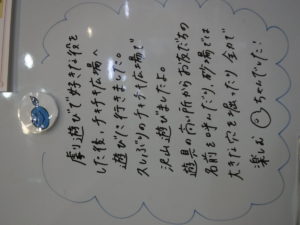 劇遊びで好きな役を
した後、チャチャ広場へ
遊びに行きました。
久しぶりのチャチャ広場で
沢山遊びましたよ。
遊具の高い所からお友だちの
名前を呼んだり、砂場では
大きな穴を掘ったり全力で
楽しむ ちゃんでした!